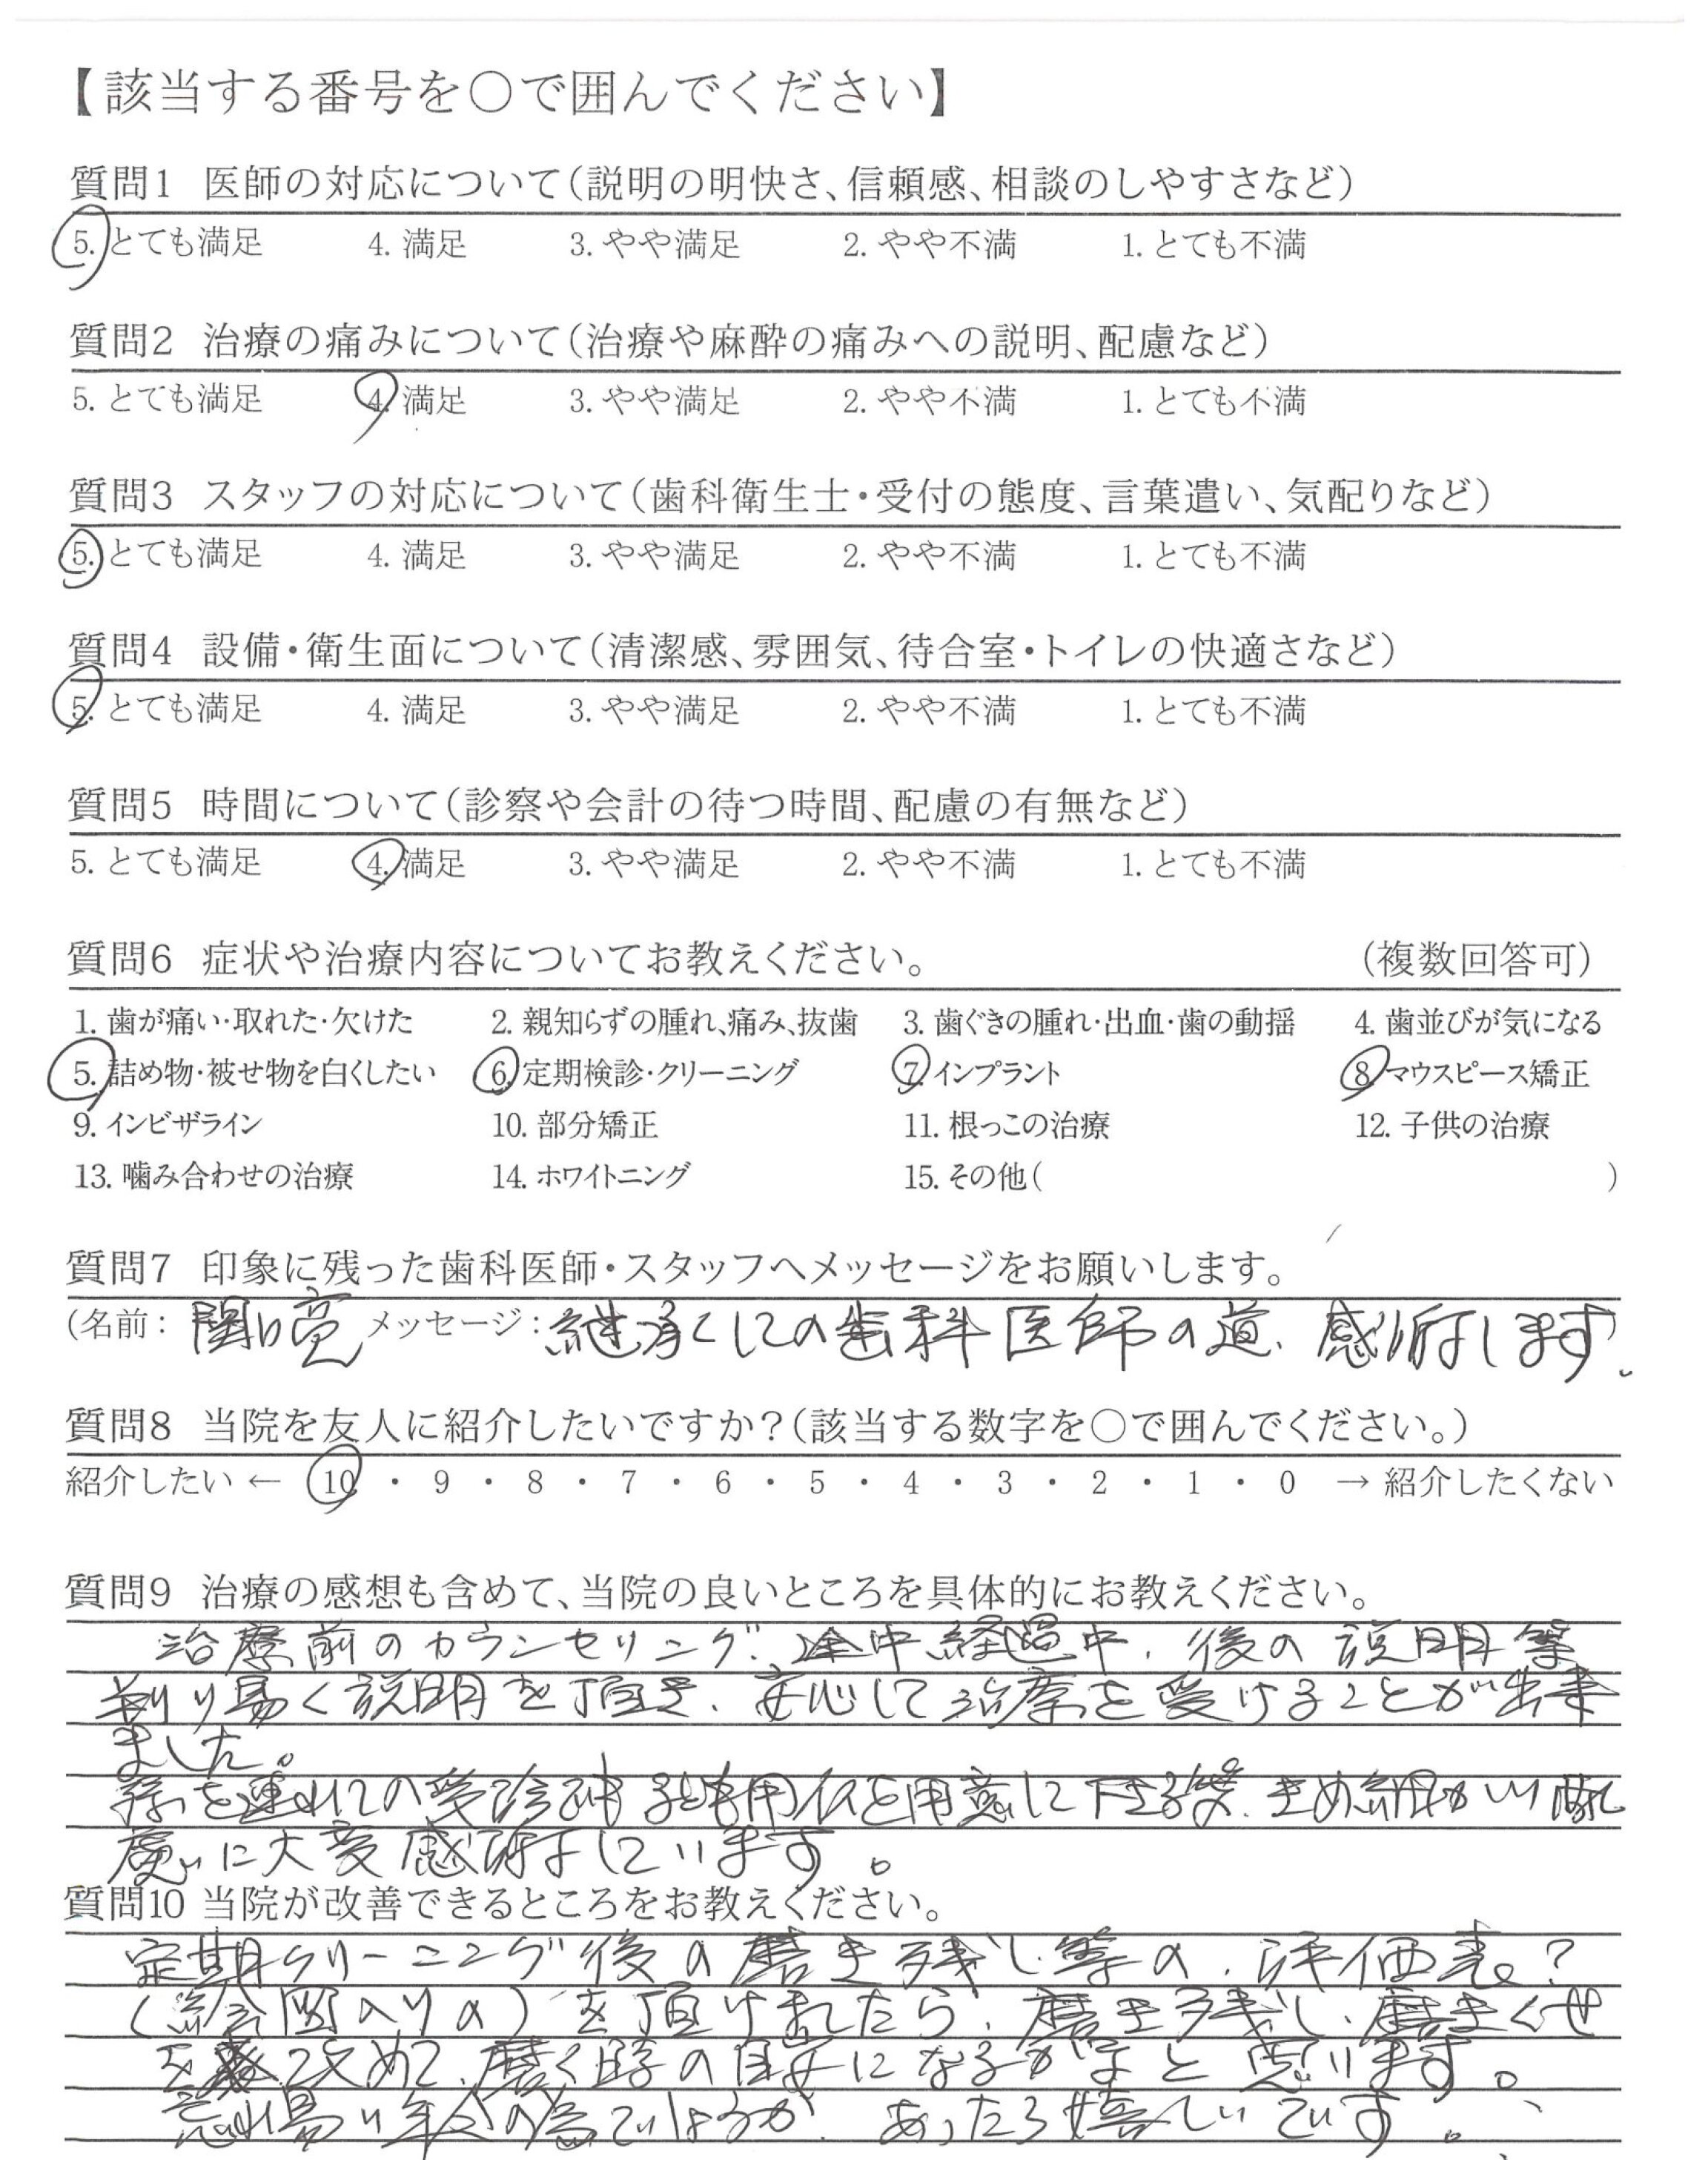 【該当する番号を○で囲んでください】
質問1 医師の対応について(説明の明快さ、信頼感、相談のしやすさなど)
5. とても満足 4. 満足 3. やや満足 2. やや不満 1. とても不満
質問2 治療の痛みについて(治療や麻酔の痛みへの説明、配慮など)
5. とても満足 4. 満足 3. やや満足 2. やや不満 1. とても不満
質問3 スタッフの対応について(歯科衛生士・受付の態度、言葉遣い、気配りなど)
5. とても満足 4. 満足 3. やや満足 2. やや不満 1. とても不満
質問4 設備・衛生面について(清潔感、雰囲気、待合室・トイレの快適さなど)
5. とても満足 4. 満足 3. やや満足 2. やや不満 1. とても不満
質問5 時間について(診察や会計の待つ時間、配慮の有無など)
5. とても満足 4. 満足 3. やや満足 2. やや不満 1. とても不満
質問6 症状や治療内容についてお教えください。 (複数回答可)
1. 歯が痛い・取れた・欠けた 2. 親知らずの腫れ、痛み、抜歯 3. 歯ぐきの腫れ・出血・歯の動揺 4. 歯並びが気になる
5. 詰め物・被せ物を白くしたい 6. 定期検診・クリーニング 7. インプラント 8. マウスピース矯正
9. インビザライン 10. 部分矯正 11. 根っこの治療 12. 子供の治療
13. 噛み合わせの治療 14. ホワイトニング 15. その他( )
質問7 印象に残った歯科医師・スタッフへメッセージをお願いします。
(名前: 関口亮 メッセージ: 継承しての歯科医師の道、感謝します。
質問8 当院を友人に紹介したいですか?(該当する数字を○で囲んでください。)
紹介したい ← 10 ・ 9 ・ 8 ・ 7 ・ 6 ・ 5 ・ 4 ・ 3 ・ 2 ・ 1 ・ 0 → 紹介したくない
質問9 治療の感想も含めて、当院の良いところを具体的にお教えください。
治療前のカウンセリング、途中経過中、後の説明等
判り易く説明を頂き、安心して治療を受けることが出来
ました。
孫を連れての受診時子ども用イスを用意して下さる等、きめ細かい配
慮に大変感謝しています。
質問10 当院が改善できるところをお教えください。
定期クリーニング後の磨き残し等の、評価表。?
(絵図入りの)を頂けましたら、磨き残し、磨きくせ
を改めて、磨く時の目安になるかなと思います。
忘れ易い年令の為でしょうが、あったら嬉しいです。